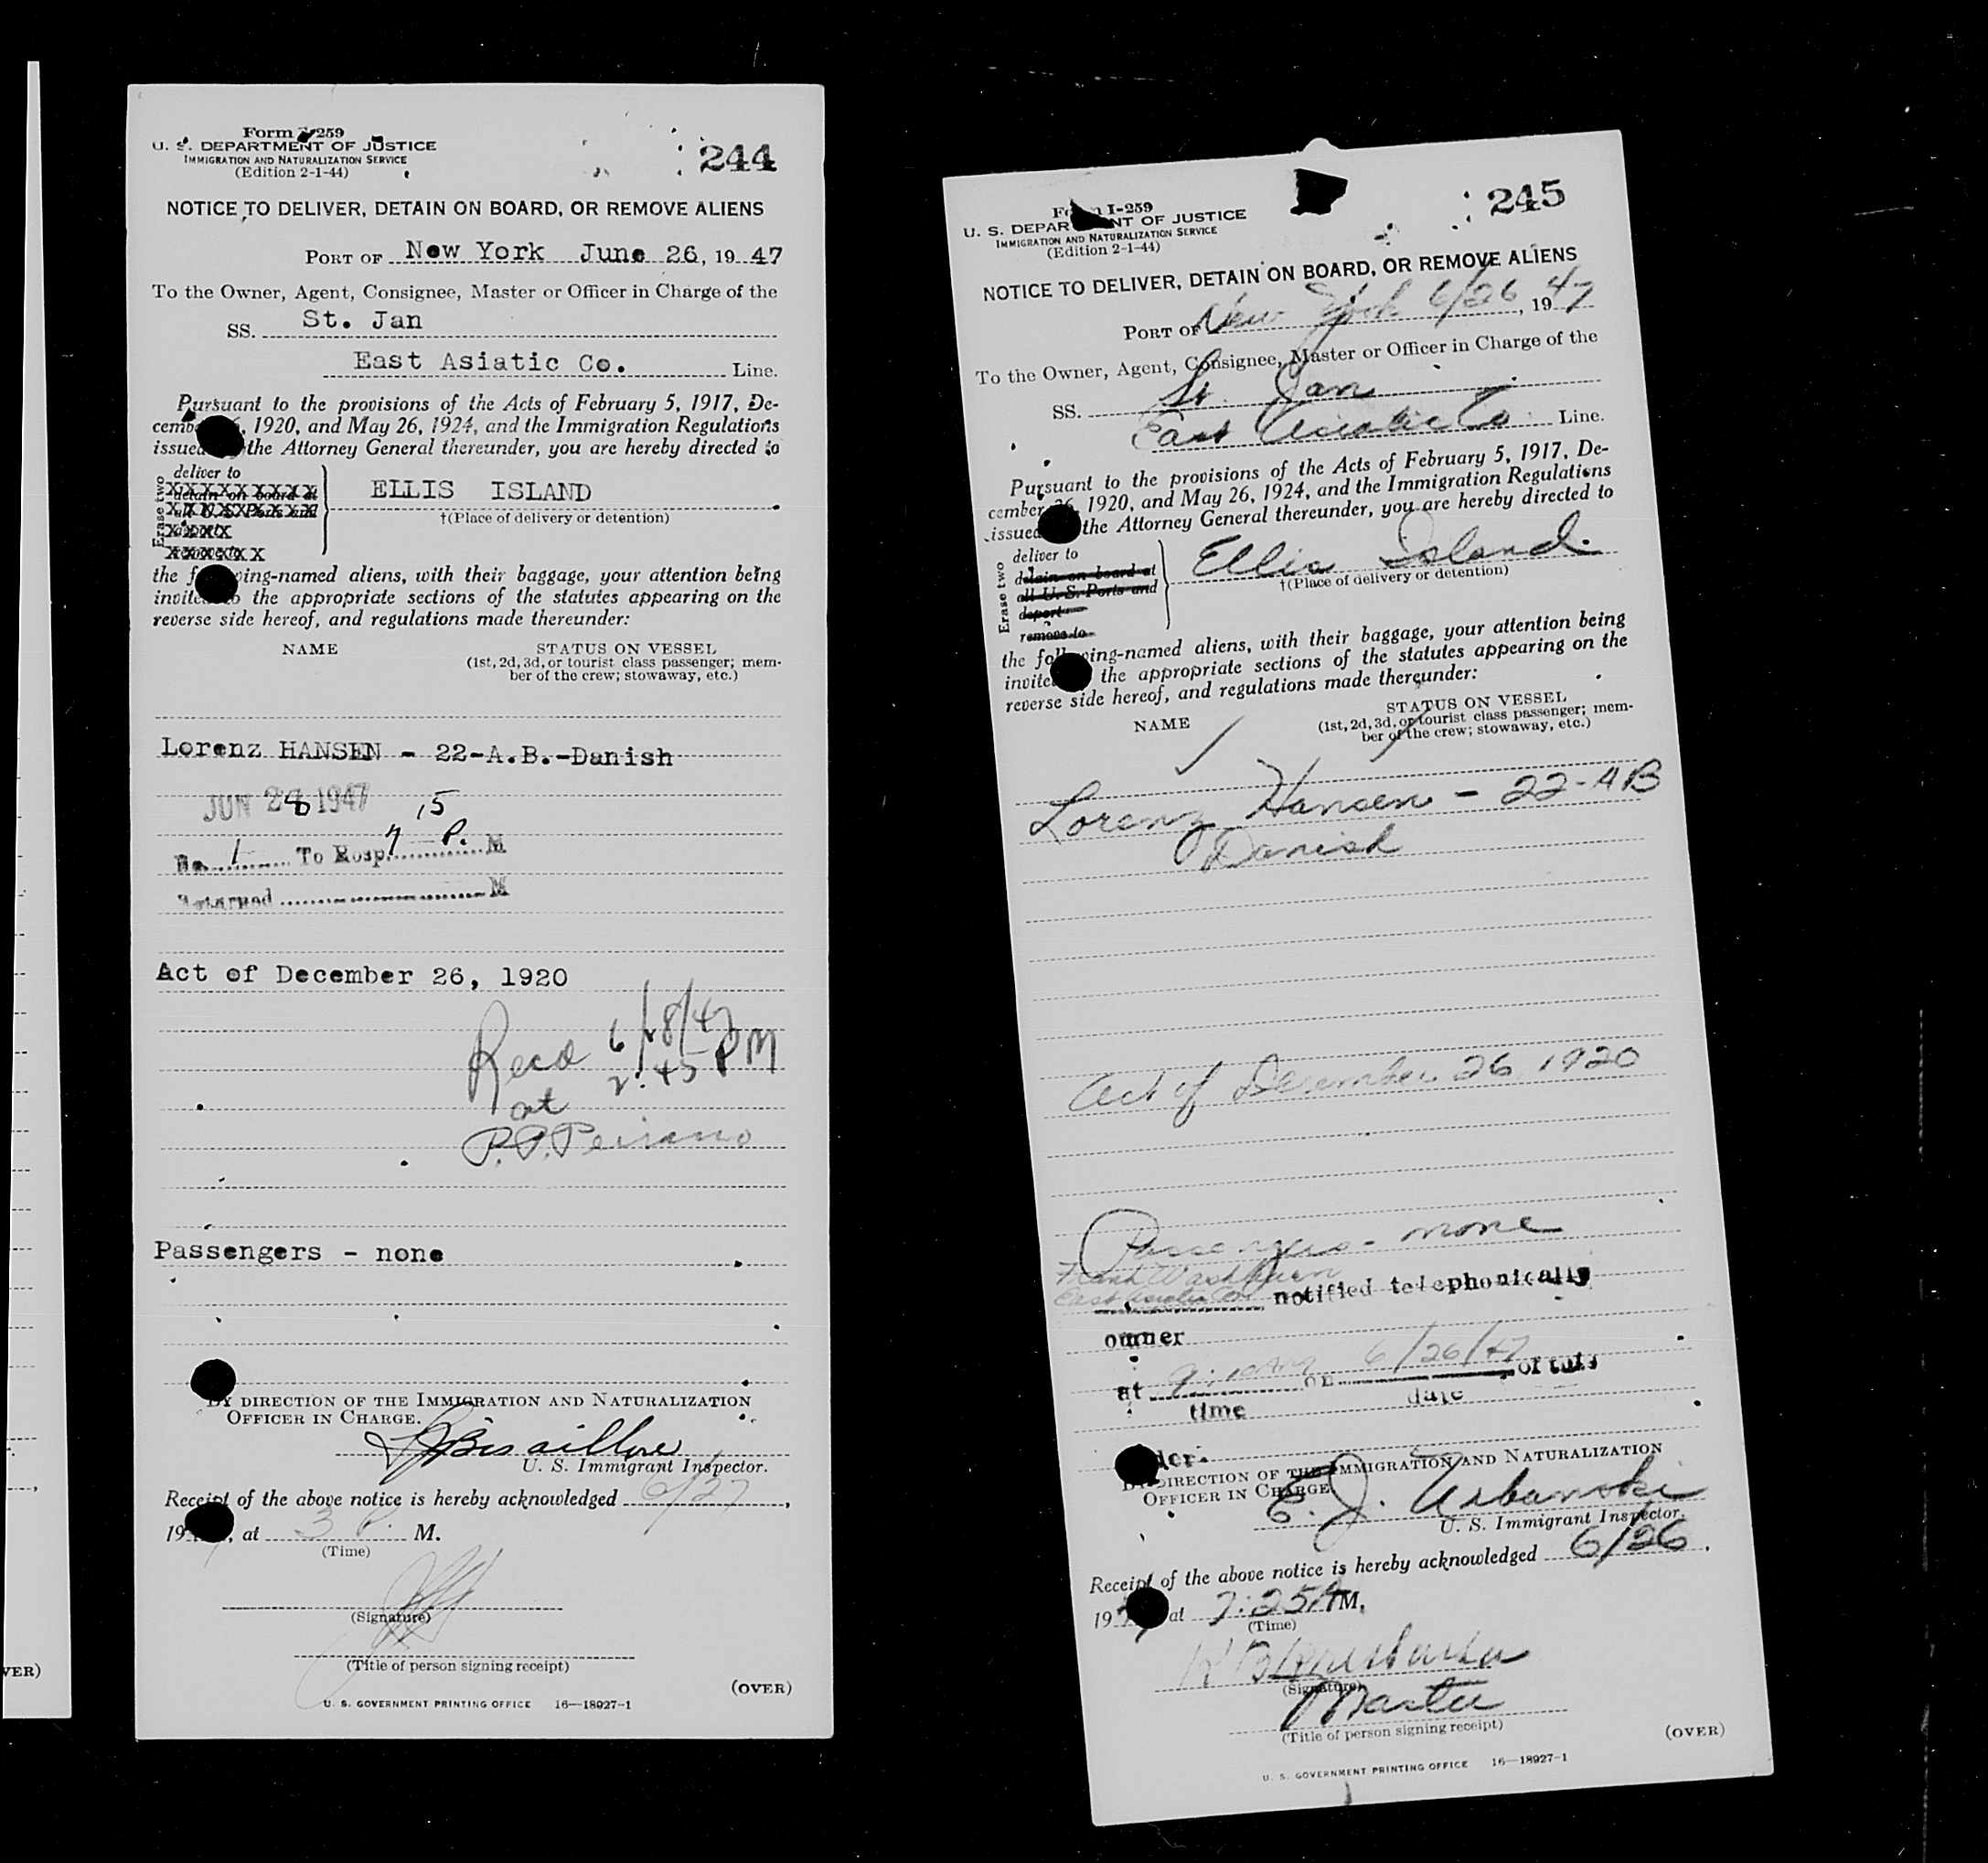 Form I-259
U. S. DEPARTMENT OF JUSTICE
IMMIGRATION AND NATURALIZATION SERVICE
(Edition 2-1-44)
244
NOTICE TO DELIVER, DETAIN ON BOARD, OR REMOVE ALIENS
PORT OF New York June 26, 19 47
To the Owner, Agent, Consignee, Master or Officer in Charge of the
SS. St. Jan
East Asiatic Co. Line.
Pursuant to the provisions of the Acts of February 5, 1917, De-
cember 26, 1920, and May 26, 1924, and the Immigration Regulations
issued by the Attorney General thereunder, you are hereby directed to
Erase two
deliver to
detain on board at
all U. S. Ports and
deport
remove to
ELLIS ISLAND
†(Place of delivery or detention)
the following-named aliens, with their baggage, your attention being
invited to the appropriate sections of the statutes appearing on the
reverse side hereof, and regulations made thereunder:
NAME STATUS ON VESSEL
(1st, 2d, 3d, or tourist class passenger; mem-
ber of the crew; stowaway, etc.)
Lorenz HANSEN - 22-A.B.-Danish
JUN 28 1947
No. 1 To Hosp. 7 15 P. M
Returned M
Act of December 26, 1920
Recd 6/28/47
at 2:45 PM
P.P. Peirano
Passengers - none
BY DIRECTION OF THE IMMIGRATION AND NATURALIZATION
OFFICER IN CHARGE.
U. S. Immigrant Inspector.
Receipt of the above notice is hereby acknowledged 6/27,
19 , at 3 P. M.
(Time)
(Signature)
(Title of person signing receipt)
(OVER)
U. S. GOVERNMENT PRINTING OFFICE 16—18927-1
Form I-259
U. S. DEPARTMENT OF JUSTICE
IMMIGRATION AND NATURALIZATION SERVICE
(Edition 2-1-44)
245
NOTICE TO DELIVER, DETAIN ON BOARD, OR REMOVE ALIENS
PORT OF New York 6/26, 19 47
To the Owner, Agent, Consignee, Master or Officer in Charge of the
SS. St. Jan
East Asiatic Co Line.
Pursuant to the provisions of the Acts of February 5, 1917, De-
cember 26, 1920, and May 26, 1924, and the Immigration Regulations
issued by the Attorney General thereunder, you are hereby directed to
Erase two
deliver to
detain on board at
all U. S. Ports and
deport
remove to
Ellis Island.
†(Place of delivery or detention)
the following-named aliens, with their baggage, your attention being
invited to the appropriate sections of the statutes appearing on the
reverse side hereof, and regulations made thereunder:
NAME STATUS ON VESSEL
(1st, 2d, 3d, or tourist class passenger; mem-
ber of the crew; stowaway, etc.)
Lorenz Hansen - 22-AB
Danish
Act of December 26 1920
Passengers - none
Frank Washburn
East Asiatic Co notified telephonically
owner
at on 6/26/47 of this
time date
order.
BY DIRECTION OF THE IMMIGRATION AND NATURALIZATION
OFFICER IN CHARGE
E. J. Urbanski
U. S. Immigrant Inspector.
Receipt of the above notice is hereby acknowledged 6/26,
19 at 7:25 A M.
(Time)
(Signature)
Master
(Title of person signing receipt)
(OVER)
U. S. GOVERNMENT PRINTING OFFICE 16—18927-1
VER)